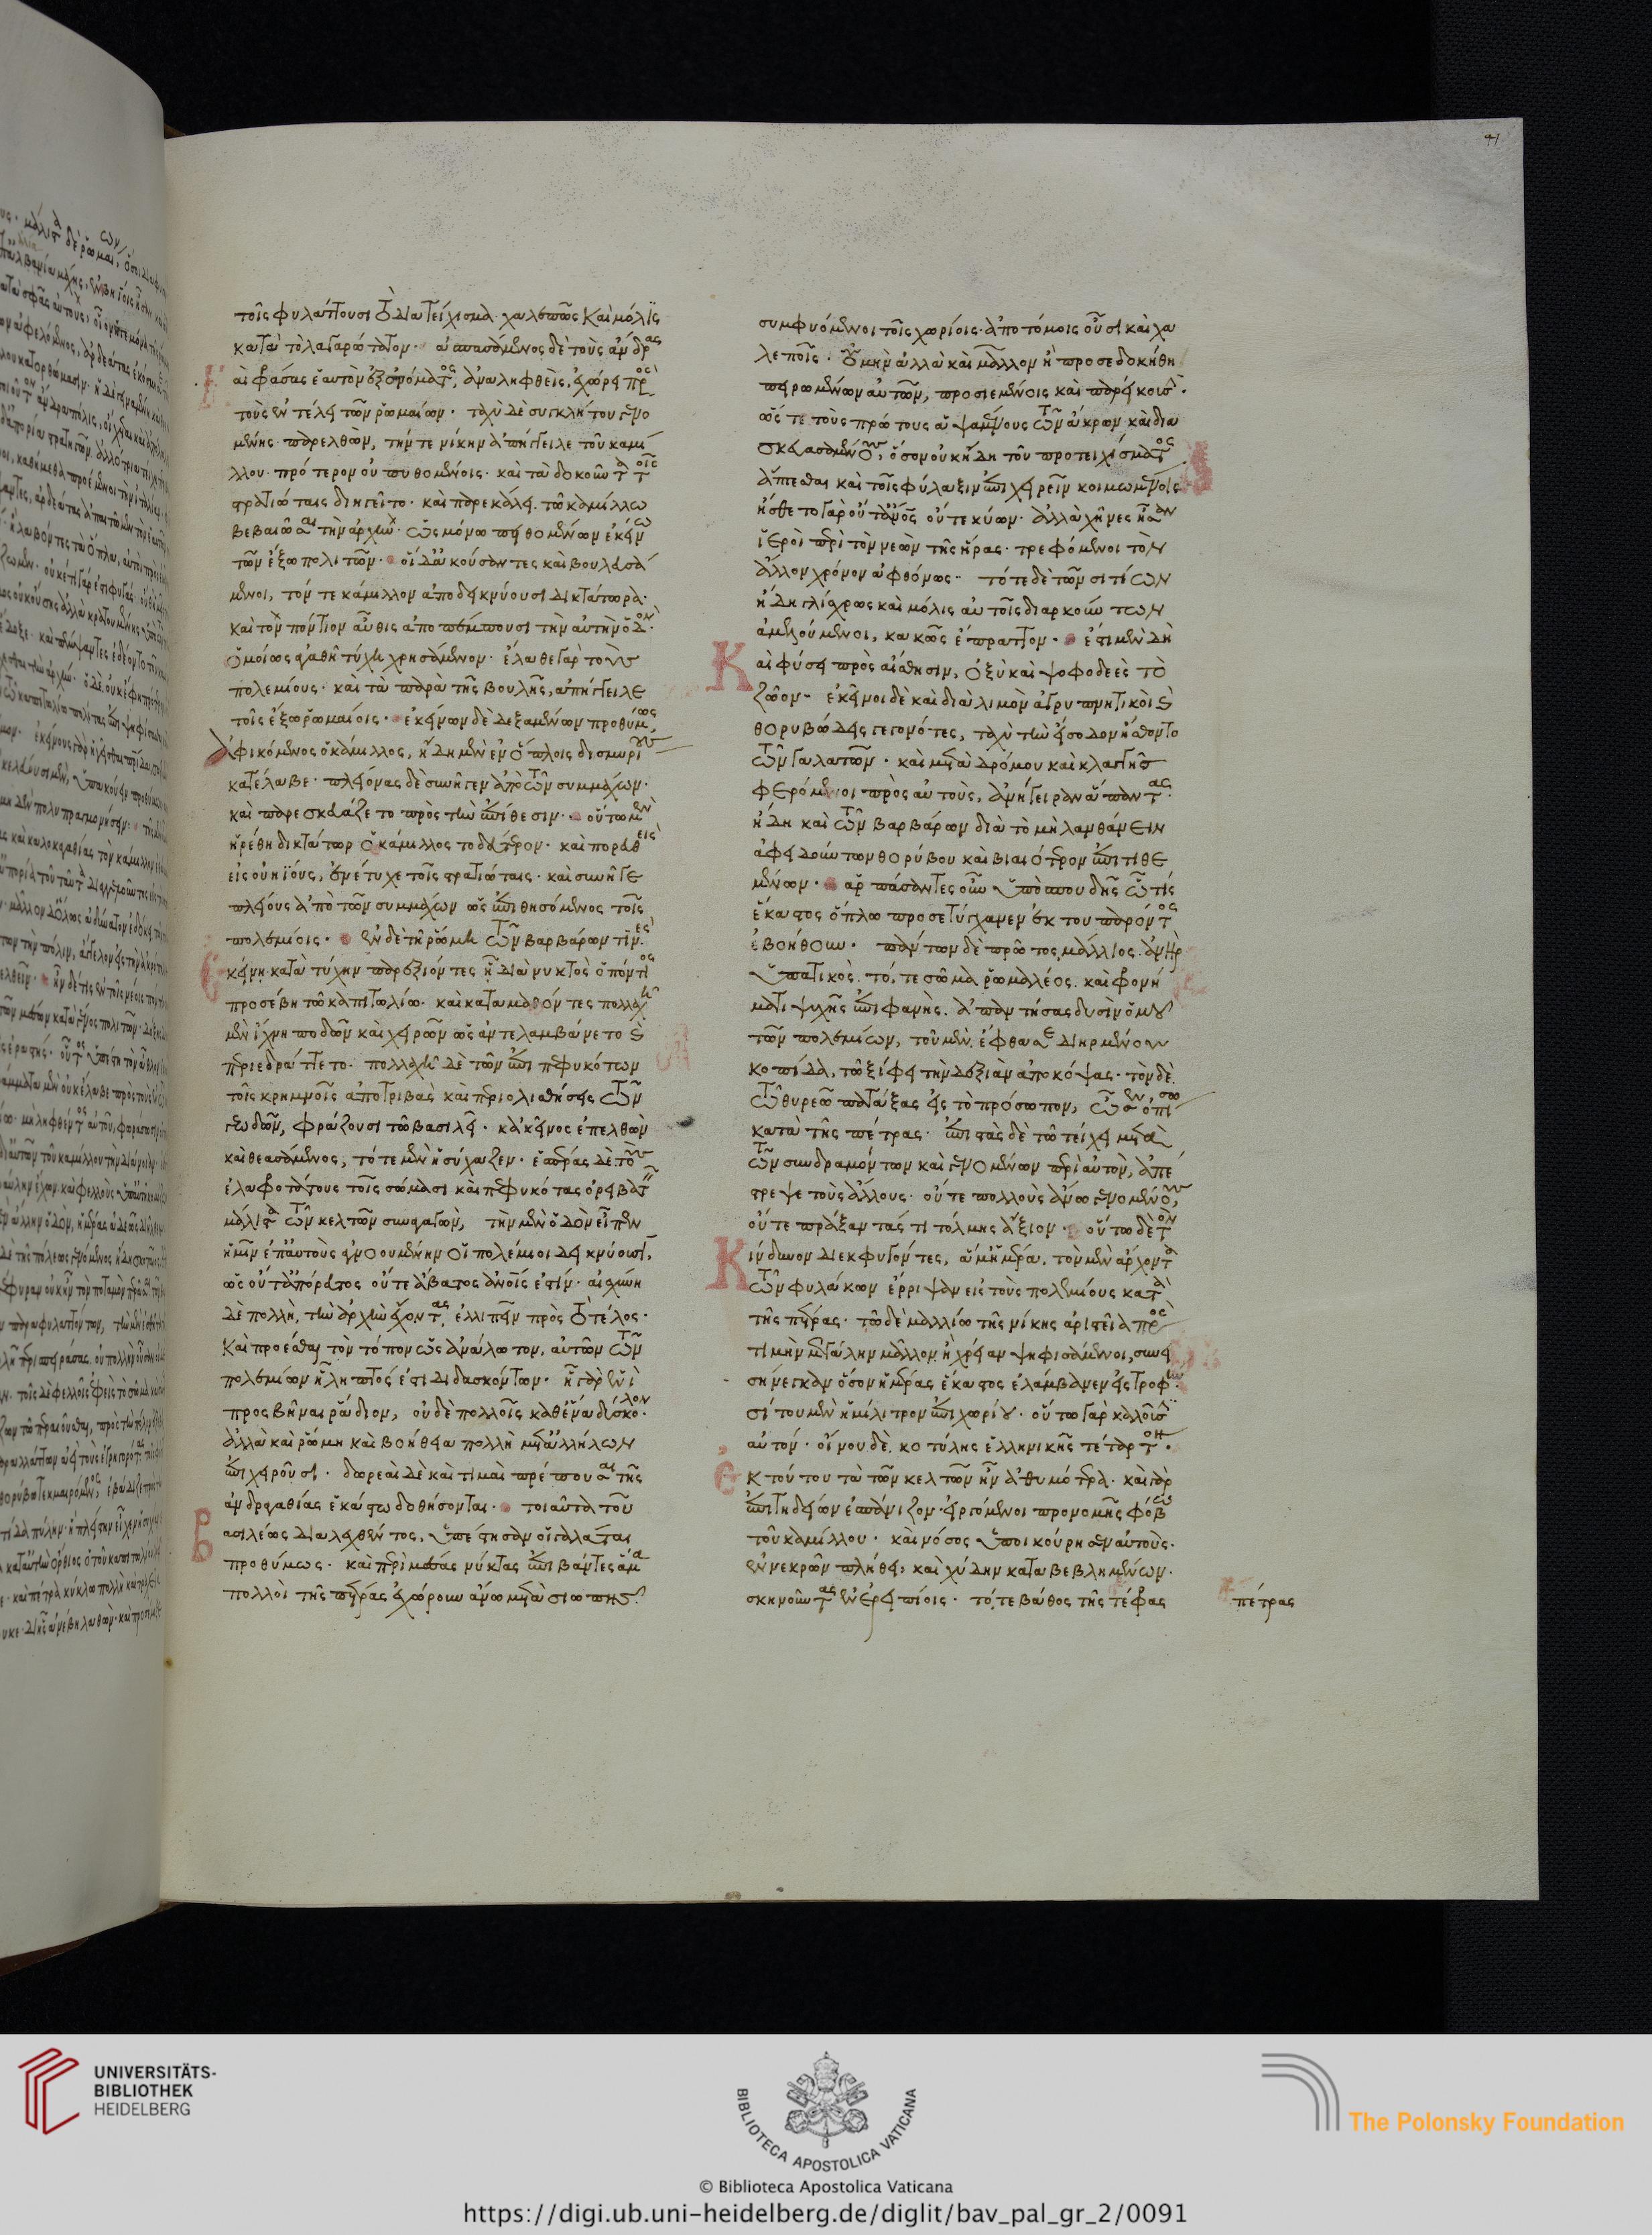 41
τοῖς φυλάττουσι τὸ διατείχισμα· χαλεπῶς καὶ μόλις
κατὰ τὸ λαγαρώτατον· ἀσπασάμενος δὲ τοὺς ἄνδρας
καὶ φράσας ἑαυτὸν ἐξ ὀνόματος, ἀναληφθεὶς, ἐχώρει πρὸς
τοὺς ἐν τέλει τῶν ῥωμαίων· ταχὺ δὲ συγκλήτου γενο
μένης παρελθὼν, τήν τε νίκην ἀπήγγειλε τοῦ καμί
λλου· πρότερον οὐ πυθομένοις· καὶ τὰ δοκοῦντα τοῖς
στρατιώταις διηγεῖτο· καὶ παρεκάλει τῶ καμίλλω
βεβαιῶσαι τὴν ἀρχήν· ὡς μόνω πειθομένων ἐκείνω
τῶν ἔξω πολιτῶν· οἱ δ' ἀκούσαντες καὶ βουλευσά
μενοι, τόν τε κάμιλλον ἀποδεικνύουσι δικτάτωρα·
καὶ τὸν πόντιον αὖθις ἀποπέμπουσι τὴν αὐτὴν ὁδὸν·
ὁμοίως ἀγαθῆ τύχη χρησάμενον· ἔλαθε γὰρ τοὺς
πολεμίους· καὶ τὰ παρὰ τῆς βουλῆς, ἀπήγγειλε
τοῖς ἔξω ῥωμαίοις· ἐκείνων δὲ δεξαμένων προθύμως,
ἀφικόμενος ὁ κάμιλλος, ἤδη μὲν ἐν ὅπλοις δισμυρίους
κατέλαβε· πλείονας δὲ συνῆγεν ἀπὸ τῶν συμμάχων·
καὶ παρεσκευάζετο πρὸς τὴν ἐπίθεσιν· οὕτω μὲν
ἡρέθη δικτάτωρ ὁ κάμιλλος τοδεύτερον· καὶ πορευθεὶς
εἰς οὐηΐους, ἐνέτυχε τοῖς στρατιώταις· καὶ συνῆγε
πλείους ἀπὸ τῶν συμμάχων ὡς ἐπιθησόμενος τοῖς
πολεμίοις· ἐν δὲ τῆ ῥώμη τῶν βαρβάρων τινὲς
ἐκείνη κατὰ τύχην παρεξιόντες ἧ διὰ νυκτὸς ὁ πόντιος
προσέβη τῶ καπιτωλίω· καὶ καταμαθόντες πολλαχῆ
μὲν ἴχνη ποδῶν καὶ χειρῶν ὡς ἀντελαμβάνετο καὶ
περιεδράττετο· πολλαχῆ δὲ τῶν ἐπιπεφυκότων
τοῖς κρημνοῖς ἀποτριβὰς καὶ περιολισθήσεις τῶν
γεωδῶν, φράζουσι τῶ βασιλεῖ· κἀκεῖνος ἐπελθὼν
καὶ θεασάμενος, τότε μὲν ἡσύχαζεν· ἑσπέρας δὲ τοὺς
ἐλαφοτάτους τοῖς σώμασι καὶ πεφυκότας ὀρειβατεῖν
μάλιστα τῶν κελτῶν συναγαγὼν, τὴν μὲν ὁδὸν εἶπεν
ἡμῖν ἐπ' αὐτοὺς ἀγνοουμένην οἱ πολέμιοι δεικνύουσι,
ὡς οὔτ' ἀπόρευτος οὔτε ἄβατος ἀνθρώποις ἐστίν· αἰσχύνη
δὲ πολλὴ, τὴν ἀρχὴν ἔχοντας, ἐλλιπεῖν πρὸς τὸ τέλος·
καὶ προέσθαι τὸν τόπον ὡς ἀνάλωτον, αὐτῶν τῶν
πολεμίων ἧ ληπτός ἐστι διδασκόντων· ἧ γὰρ ἑνὶ
προςβῆναι ῥάδιον, οὐδὲ πολλοῖς καθ' ἕνα δύσκολον·
ἀλλὰ καὶ ῥώμη καὶ βοήθεια πολλὴ μετ' ἀλλήλων
ἐπιχειροῦσι· δωρεαὶ δὲ καὶ τιμαὶ πρέπουσαι τῆς
ἀνδραγαθίας ἑκάστω δοθήσονται· τοιαῦτα τοῦ
βασιλέως διαλεχθέντος, ὑπέστησαν οἱ γαλάται
προθύμως· καὶ περὶ μέσας νύκτας ἐπιβάντες ἅμα
πολλοὶ τῆς πέτρας ἐχώρουν ἄνω μετὰ σιωπῆς·
συμφυόμενοι τοῖς χωρίοις· ἀποτόμοις οὖσι καὶ χα
λεποῖς· οὐ μὴν ἀλλὰ καὶ μᾶλλον ἢ προσεδοκήθη
πειρωμένων αὐτῶν, προσιεμένοις καὶ παρείκουσι·
ὥς τε τοὺς πρώτους ἁψαμένους τῶν ἄκρων καὶ δια
σκευασαμένους, ὅσον οὐκ ἤδη τοῦ προτειχίσματος
ἅπτεσθαι καὶ τοῖς φύλαξιν ἐπιχειρεῖν κοιμωμένοις·
ἤσθετο γὰρ οὔτ' ἄνθρωπος οὔτε κύων· ἀλλὰ χῆνες ἦσαν
ἱεροὶ περὶ τὸν νεὼν τῆς ἥρας· τρεφόμενοι τὸν
ἄλλον χρόνον ἀφθόνως· τότε δὲ τῶν σιτίων
ἤδη γλίσχρως καὶ μόλις αὐτοῖς διαρκούντων
ἀμελούμενοι, κακῶς ἔπραττον· ἔστι μὲν δὴ
καὶ φύσει πρὸς αἴσθησιν, ὀξὺ καὶ ψοφοδεὲς τὸ
ζῶον· ἐκεῖνοι δὲ καὶ διὰ λιμὸν ἀγρυπνητικοὶ καὶ
θορυβώδεις γεγονότες, ταχὺ τὴν ἔφοδον ἤσθοντο
τῶν γαλατῶν· καὶ μετὰ δρόμου καὶ κλαγγῆς
φερόμενοι πρὸς αὐτοὺς, ἀνήγειραν ἅπαντας·
ἤδη καὶ τῶν βαρβάρων διὰ τὸ μὴ λανθάνειν
ἀφειδούντων θορύβου καὶ βιαιότερον ἐπιτιθε
μένων· ἁρπάσαντες οὖν ὑπὸ σπουδῆς ὧ τίς
ἕκαστος ὅπλω προσετύγχανεν ἐκ του παρόντος
ἐβοήθουν· πάντων δὲ πρῶτος μάλλιος· ἀνὴρ
ὑπατικὸς· τό, τε σῶμα ῥωμαλέος· καὶ φρονή
ματι ψυχῆς ἐπιφανὴς· ἀπαντήσας δυσὶν ὁμοῦ
τῶν πολεμίων, τοῦ μὲν ἔφθασε διηρμένου
κοπίδα, τῶ ξίφει τὴν δεξιὰν ἀποκόψας· τὸν δὲ
τῶ θυρεῶ πατάξας εἰς τὸ πρόσωπον, ὦσεν ὀπίσω
κατὰ τῆς πέτρας· ἐπιστὰς δὲ τῶ τείχει μετὰ
τῶν συνδραμόντων καὶ γενομένων περὶ αὐτὸν, ἀπέ
στρεψε τοὺς ἄλλους· οὔτε πολλοὺς ἄνω γενομένους,
οὔτε πράξαντάς τι τόλμης ἄξιον· οὕτω δὲ τὸν
κίνδυνον διεκφυγόντες, ἅμ' ἡμέρα, τὸν μὲν ἄρχοντα
τῶν φυλάκων ἔρριψαν εἰς τοὺς πολεμίους κατὰ
τῆς πέτρας· τῶ δὲ μαλλίω τῆς νίκης ἀριστεῖα πρὸς
τιμὴν μεγάλην μᾶλλον ἢ χρείαν ψηφισάμενοι, συνει
σήνεγκαν ὅσον ἡμέρας ἕκαστος ἐλάμβανεν εἰς τροφήν·
σίτου μὲν ἡμίλιτρον ἐπιχωρίου· οὕτω γὰρ καλοῦσιν
αὐτόν· οἴνου δὲ κοτύλης ἑλληνικῆς τέταρτον·
ἐκ τούτου τὰ τῶν κελτῶν ἦν ἀθυμότερα· καὶ γὰρ
ἐπιτηδείων ἐσπάνιζον· εἰργόμενοι προνομῆς φόβω
τοῦ καμίλλου· καὶ νόσος ὑποικούρησεν αὐτοὺς·
ἐν νεκρῶν πλήθει, καὶ χύδην καταβεβλημένων·
σκηνοῦντας ἐν ἐρειπίοις· τό, τε βάθος τῆς τέφρας
πέτρας
UNIVERSITÄTS-
BIBLIOTHEK
HEIDELBERG
BIBLIOTECA APOSTOLICA VATICANA
The Polonsky Foundation
© Biblioteca Apostolica Vaticana
https://digi.ub.uni-heidelberg.de/diglit/bav_pal_gr_2/0091